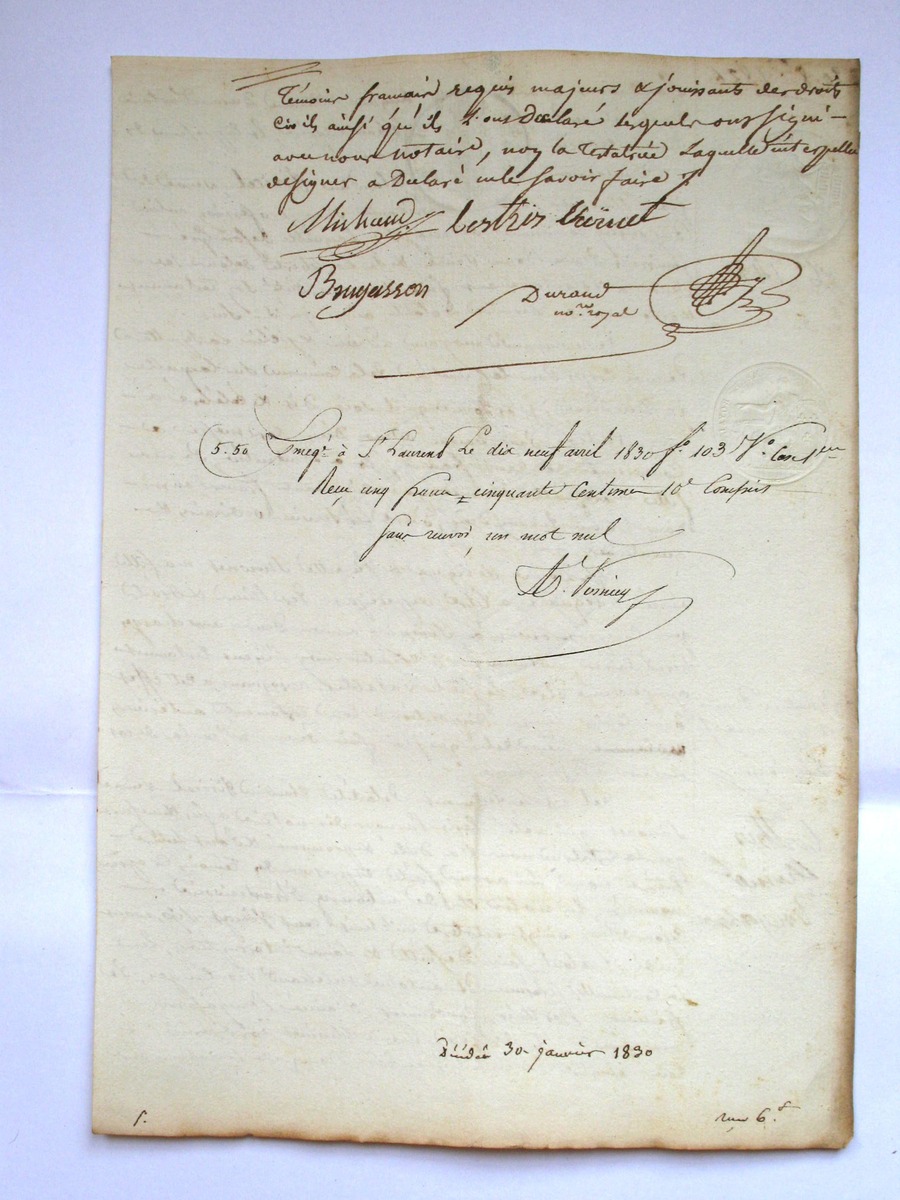 Témoins français requis majeurs & jouissants des droits
civils ainsi qu'ils l'ont Déclaré lesquels ont signé
avec nous notaire, non la Testatrice Laquelle interpellée
de signer a Déclaré ne le Savoir faire
Michaud Lesthis
Brugasson Durand
no.re royal
5.50 Enregt. à St Laurent Le dix neuf avril 1830 fo. 103 Vo. Case 1ere
Reçu cinq francs cinquante Centimes 10e Compris
Sans renvoi, un mot nul
Décédée 30 janvier 1830